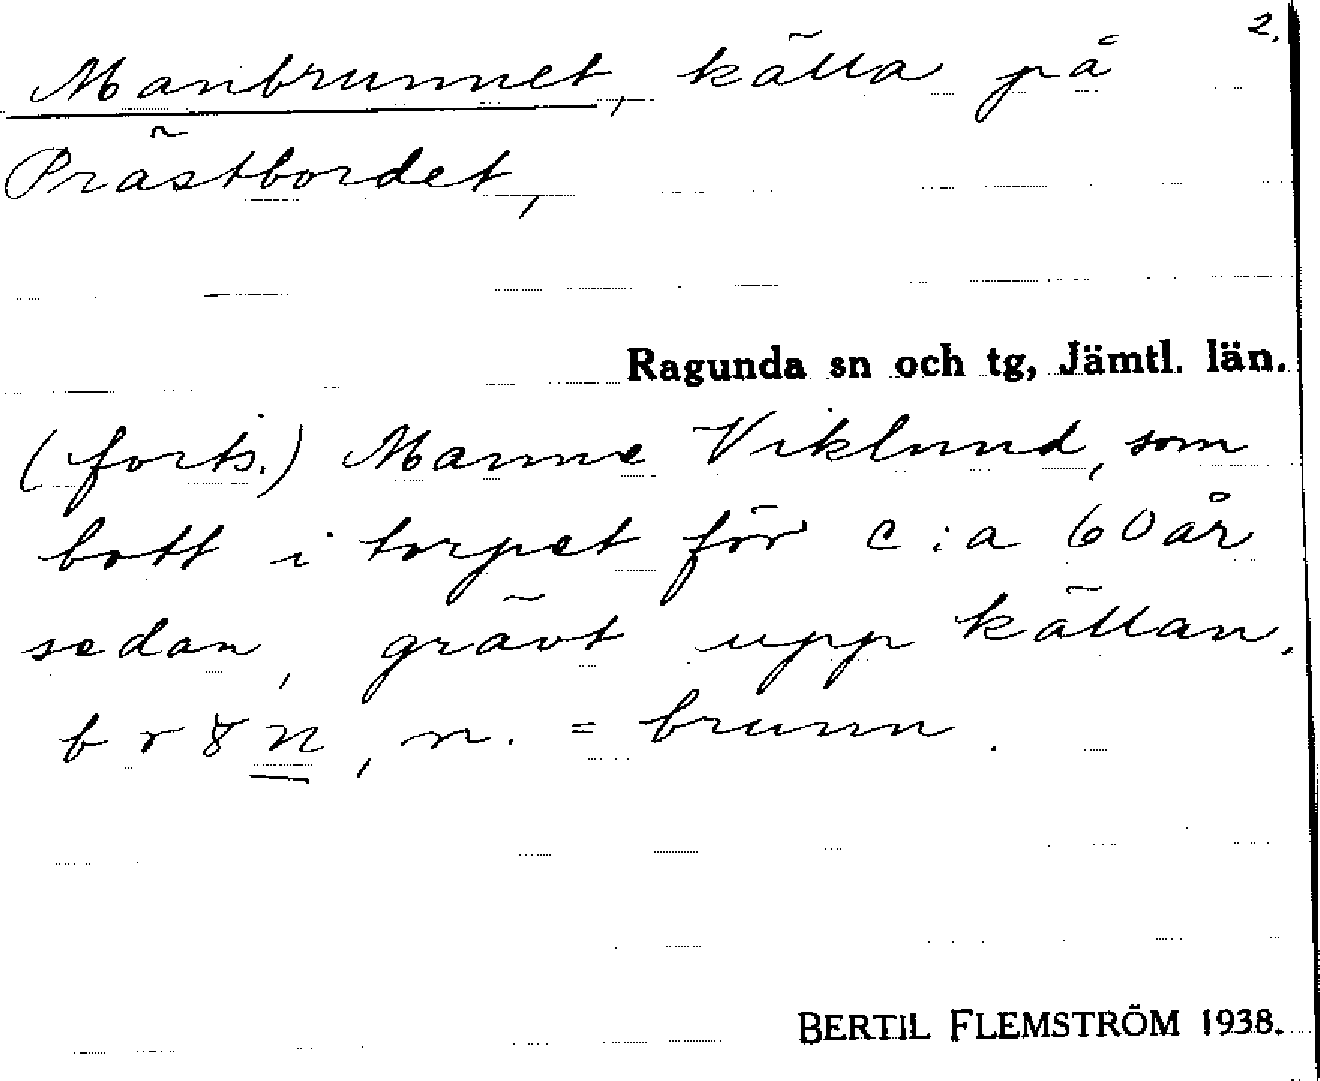 2.
Manbrunnet, källa på
Prästbordet,
Ragunda sn och tg, Jämtl. län.
(forts.) Manne Viklund, som
bott i torpet för c:a 60 år
sedan, grävt upp källan.
br n, n. = brunn.
BERTIL FLEMSTRÖM 1938.